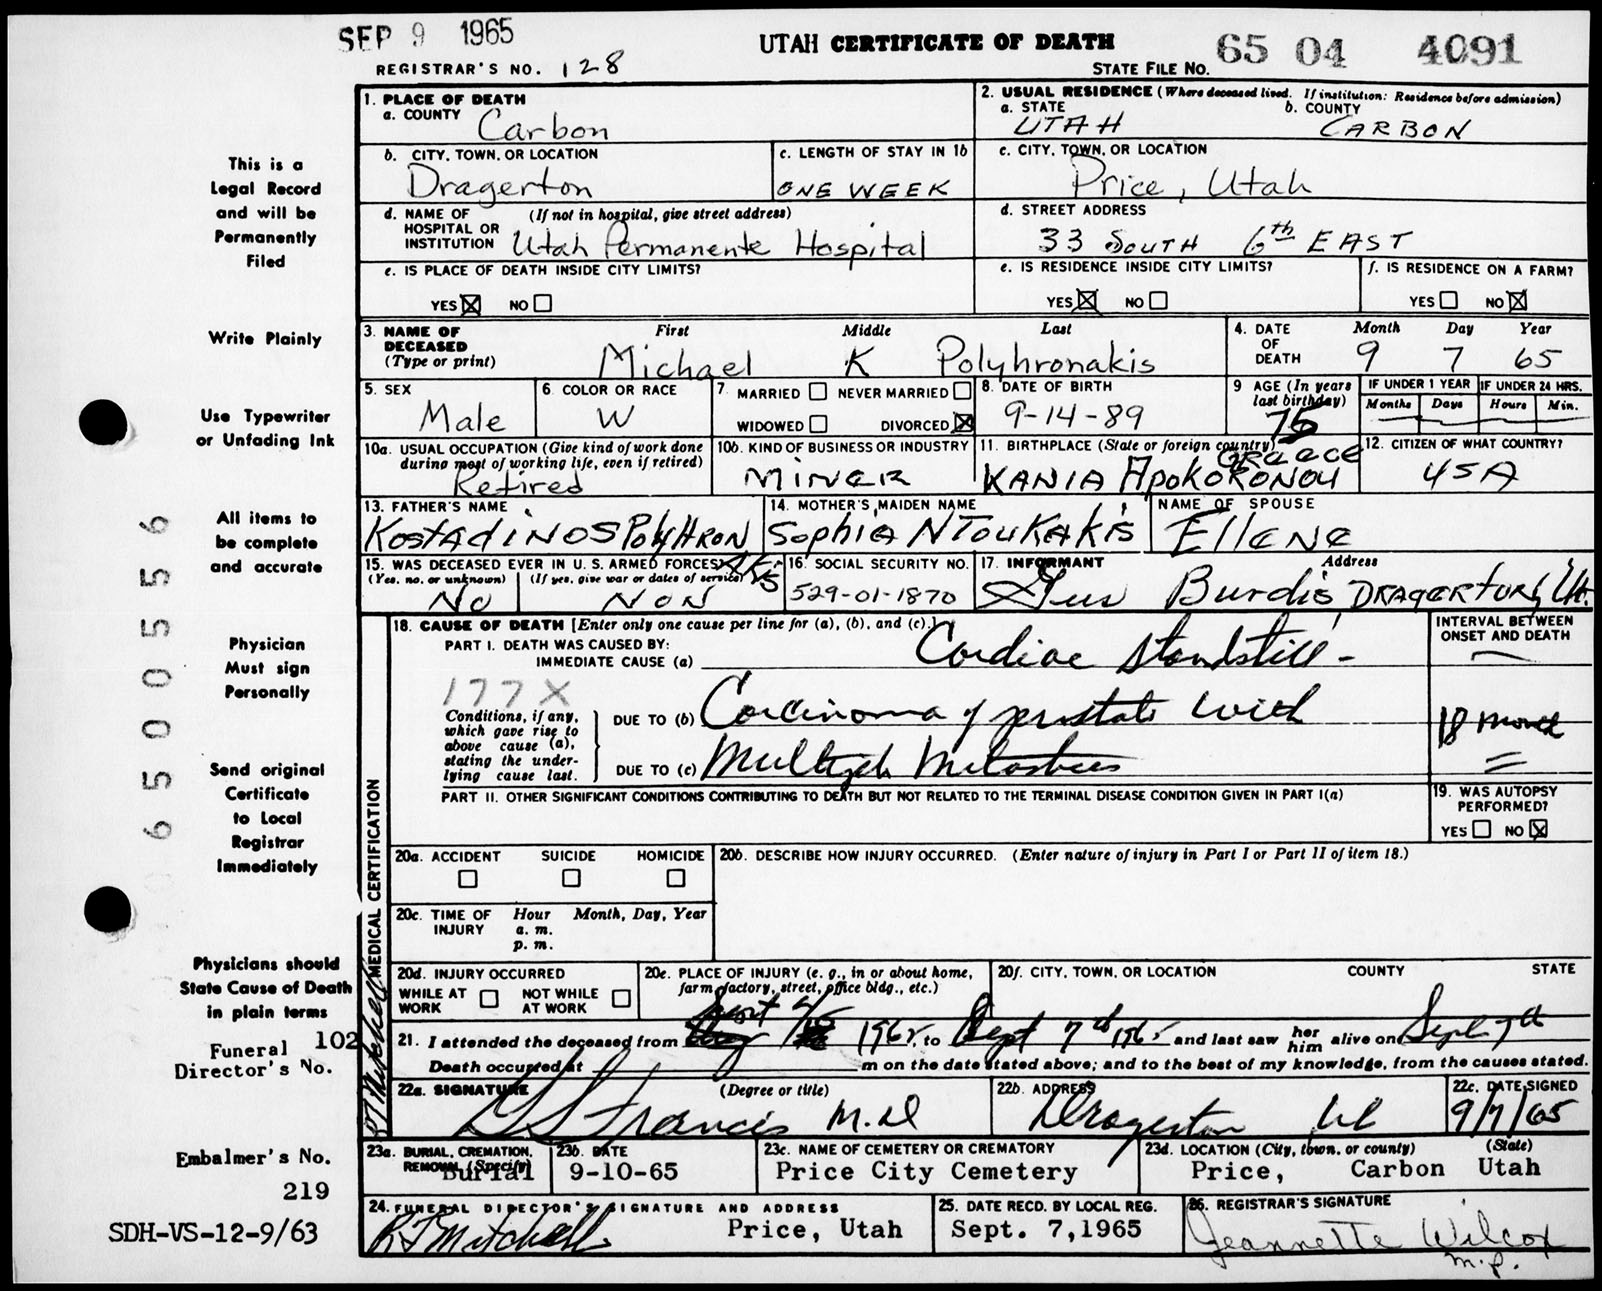 SEP 9 1965
UTAH CERTIFICATE OF DEATH
65 04 4091
REGISTRAR'S NO. 128
STATE FILE NO.
1. PLACE OF DEATH
a. COUNTY Carbon
2. USUAL RESIDENCE (Where deceased lived. If institution: Residence before admission)
a. STATE UTAH
b. COUNTY CARBON
b. CITY, TOWN, OR LOCATION
Dragerton
c. LENGTH OF STAY IN 1b
ONE WEEK
c. CITY, TOWN, OR LOCATION
Price, Utah
d. NAME OF HOSPITAL OR INSTITUTION (If not in hospital, give street address)
Utah Permanente Hospital
d. STREET ADDRESS
33 SOUTH 6th EAST
e. IS PLACE OF DEATH INSIDE CITY LIMITS?
YES X NO
e. IS RESIDENCE INSIDE CITY LIMITS?
YES X NO
f. IS RESIDENCE ON A FARM?
YES NO X
3. NAME OF DECEASED (Type or print)
First Middle Last
Michael K Polyhronakis
4. DATE OF DEATH
Month Day Year
9 7 65
5. SEX
Male
6. COLOR OR RACE
W
7. MARRIED NEVER MARRIED
WIDOWED DIVORCED X
8. DATE OF BIRTH
9-14-89
9 AGE (In years last birthday)
75
IF UNDER 1 YEAR
Months Days
IF UNDER 24 HRS.
Hours Min.
10a. USUAL OCCUPATION (Give kind of work done during most of working life, even if retired)
Retired
10b. KIND OF BUSINESS OR INDUSTRY
MINER
11. BIRTHPLACE (State or foreign country)
GREECE
KANIA APOKORONOU
12. CITIZEN OF WHAT COUNTRY?
USA
13. FATHER'S NAME
KOSTADINOS POLYHRONAKIS
14. MOTHER'S MAIDEN NAME
SOPHIA NTOUKAKIS
NAME OF SPOUSE
ELLENE
15. WAS DECEASED EVER IN U. S. ARMED FORCES
(Yes, no, or unknown) (If yes, give war or dates of service)
NO NON
16. SOCIAL SECURITY NO.
529-01-1870
17. INFORMANT Address
Gus Burdis DRAGERTON, Ut.
18. CAUSE OF DEATH [Enter only one cause per line for (a), (b), and (c).]
PART I. DEATH WAS CAUSED BY:
IMMEDIATE CAUSE (a) Cardiac standstill -
INTERVAL BETWEEN ONSET AND DEATH
177X
Conditions, if any, which gave rise to above cause (a), stating the underlying cause last.
DUE TO (b) Carcinoma of prostate with
18 month
DUE TO (c) Multiple Metastases
PART II. OTHER SIGNIFICANT CONDITIONS CONTRIBUTING TO DEATH BUT NOT RELATED TO THE TERMINAL DISEASE CONDITION GIVEN IN PART I(a)
19. WAS AUTOPSY PERFORMED?
YES NO X
MEDICAL CERTIFICATION
20a. ACCIDENT SUICIDE HOMICIDE
20b. DESCRIBE HOW INJURY OCCURRED. (Enter nature of injury in Part I or Part II of item 18.)
20c. TIME OF INJURY Hour Month, Day, Year
a. m.
p. m.
20d. INJURY OCCURRED
WHILE AT WORK NOT WHILE AT WORK
20e. PLACE OF INJURY (e. g., in or about home, farm, factory, street, office bldg., etc.)
20f. CITY, TOWN, OR LOCATION COUNTY STATE
21. I attended the deceased from 1965, to Sept 7th 1965 and last saw her him alive on Sept 7th
Death occurred at m on the date stated above; and to the best of my knowledge, from the causes stated.
22a. SIGNATURE (Degree or title)
Francis M.D
22b. ADDRESS
Dragerton Ut
22c. DATE SIGNED
9/7/65
23a. BURIAL, CREMATION, REMOVAL (Specify)
Burial
23b. DATE
9-10-65
23c. NAME OF CEMETERY OR CREMATORY
Price City Cemetery
23d. LOCATION (City, town, or county) (State)
Price, Carbon Utah
24. FUNERAL DIRECTOR'S SIGNATURE AND ADDRESS
R J Mitchell Price, Utah
25. DATE RECD. BY LOCAL REG.
Sept. 7, 1965
26. REGISTRAR'S SIGNATURE
Jeannette Wilcox
M.P.
This is a
Legal Record
and will be
Permanently
Filed
Write Plainly
Use Typewriter
or Unfading Ink
All items to
be complete
and accurate
Physician
Must sign
Personally
Send original
Certificate
to Local
Registrar
Immediately
Physicians should
State Cause of Death
in plain terms
102
Funeral
Director's No.
R J Mitchell
Embalmer's No.
219
SDH-VS-12-9/63
6500556